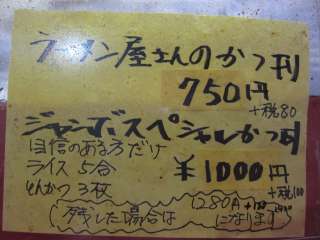 ラーメン屋さんのかつ丼
750円
+税80
ジャンボスペシャルかつ丼
自信のある方だけ
ライス 5合 ¥1000円
とんかつ 3枚 +税100
(残した場合は 1280円
になります)